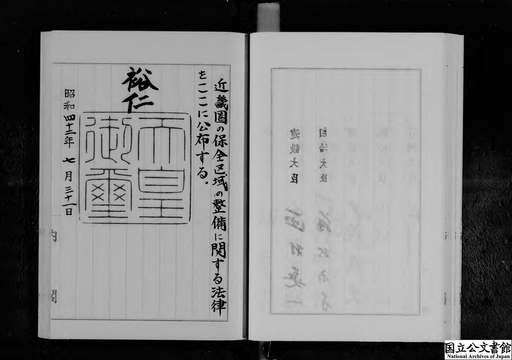 近畿圏の保全区域の整備に関する法律
をここに公布する。
裕仁
天皇
御璽
昭和四十二年七月三十一日
内閣
自治大臣
建設大臣
国立公文書館
National Archives of Japan